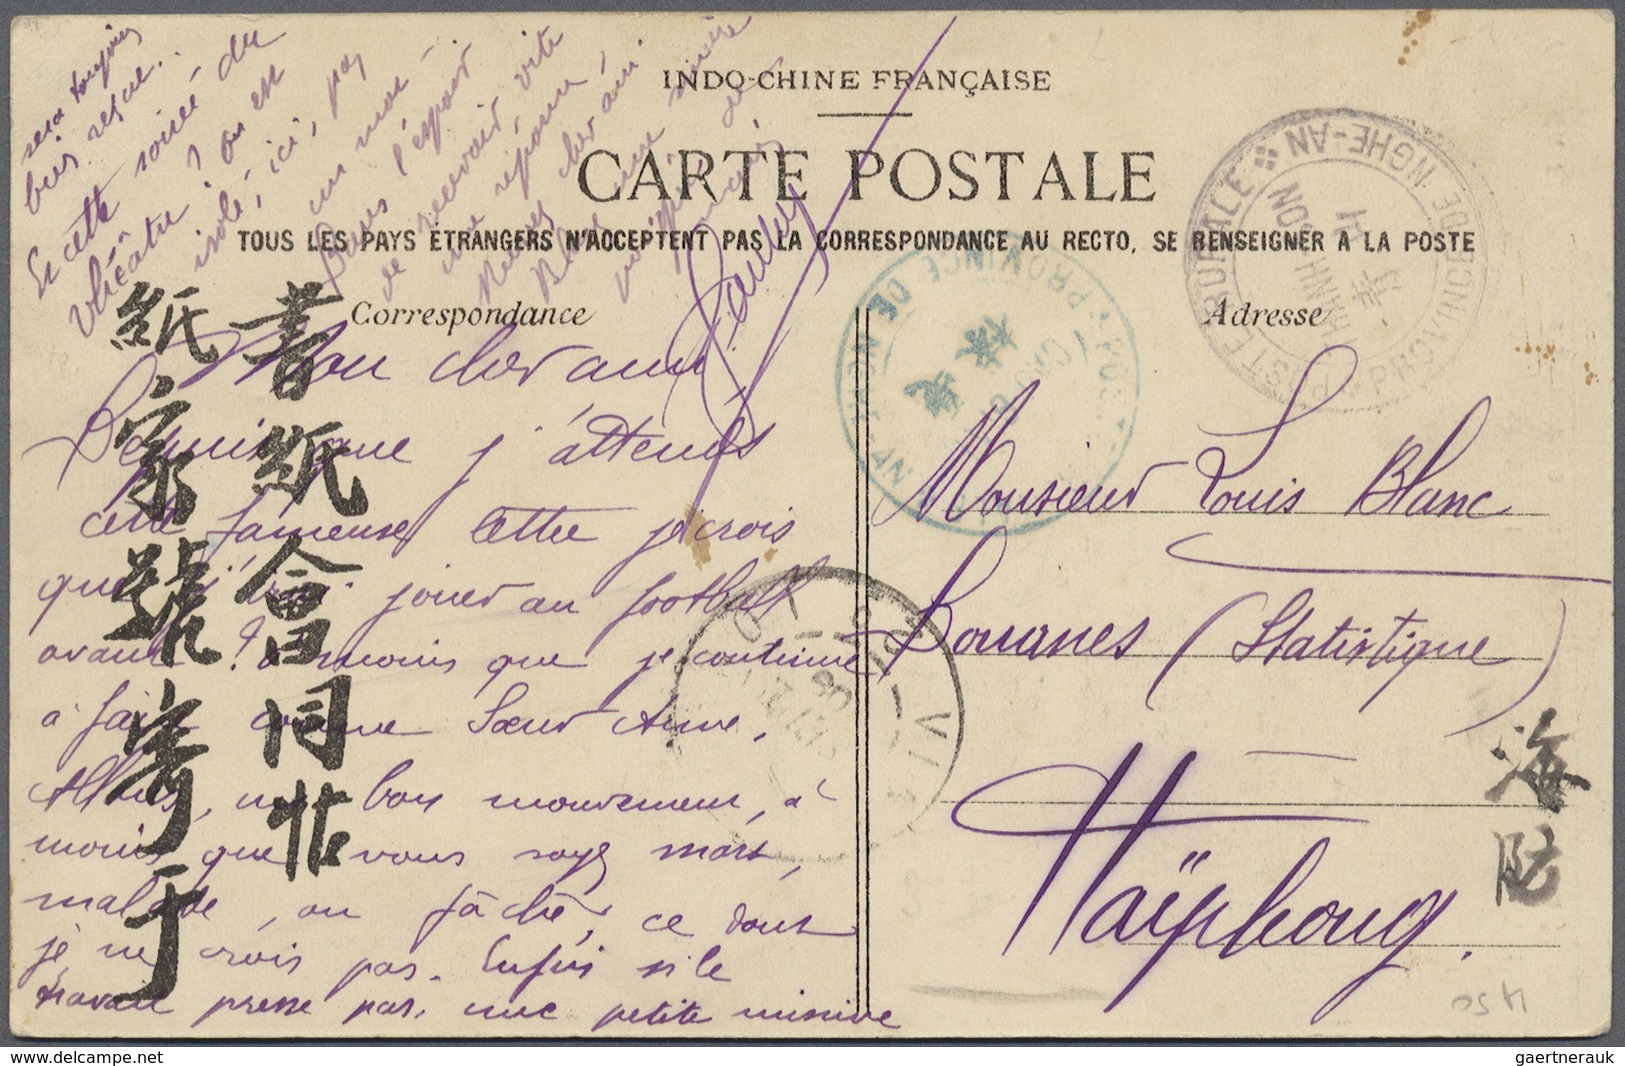 INDO-CHINE FRANÇAISE
CARTE POSTALE
TOUS LES PAYS ÉTRANGERS N'ACCEPTENT PAS LA CORRESPONDANCE AU RECTO, SE RENSEIGNER A LA POSTE
Correspondance
Adresse
Mon cher ami
Depuis que j'attends
cette fameuse lettre je crois
que j' jouer au football
avant ? à moins que je continue
à faire comme Sœur Anne.
Allons, un bon mouvement, à
moins que vous soyez mort,
malade, ou fâché, ce dont
je ne crois pas. Enfin si le
travail presse pas, une petite missive
sera toujours
bien reçue..
Et cette soirée du
théâtre ? on est
isolé, ici, pas
un mot -
Dans l'espoir
de recevoir vite
une réponse,
cher ami
Pauley
Monsieur Louis Blanc
Douanes (Statistique)
Haïphong.
書紙會同帖
紙家號寄于
海防
POSTE RURALE
PROVINCE DE NGHE-AN
PROVINCE DE
VINH
1450
gaertnerauk
delcampe.net